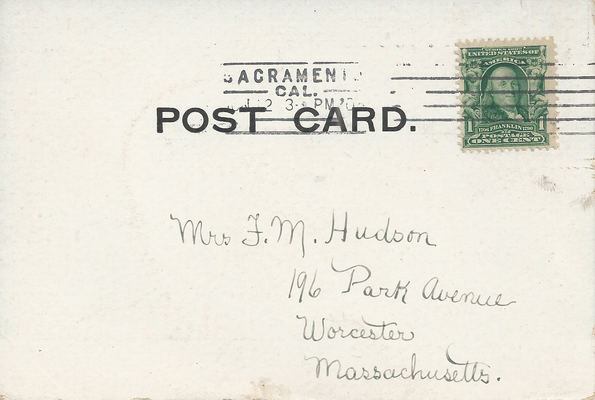 SACRAMENTO
CAL.
12 3- PM
POST CARD.
SERIES 1902
UNITED STATES OF
AMERICA
1 FRANKLIN 1
POSTAGE
ONE CENT
Mrs F. M. Hudson
196 Park Avenue
Worcester
Massachusetts.